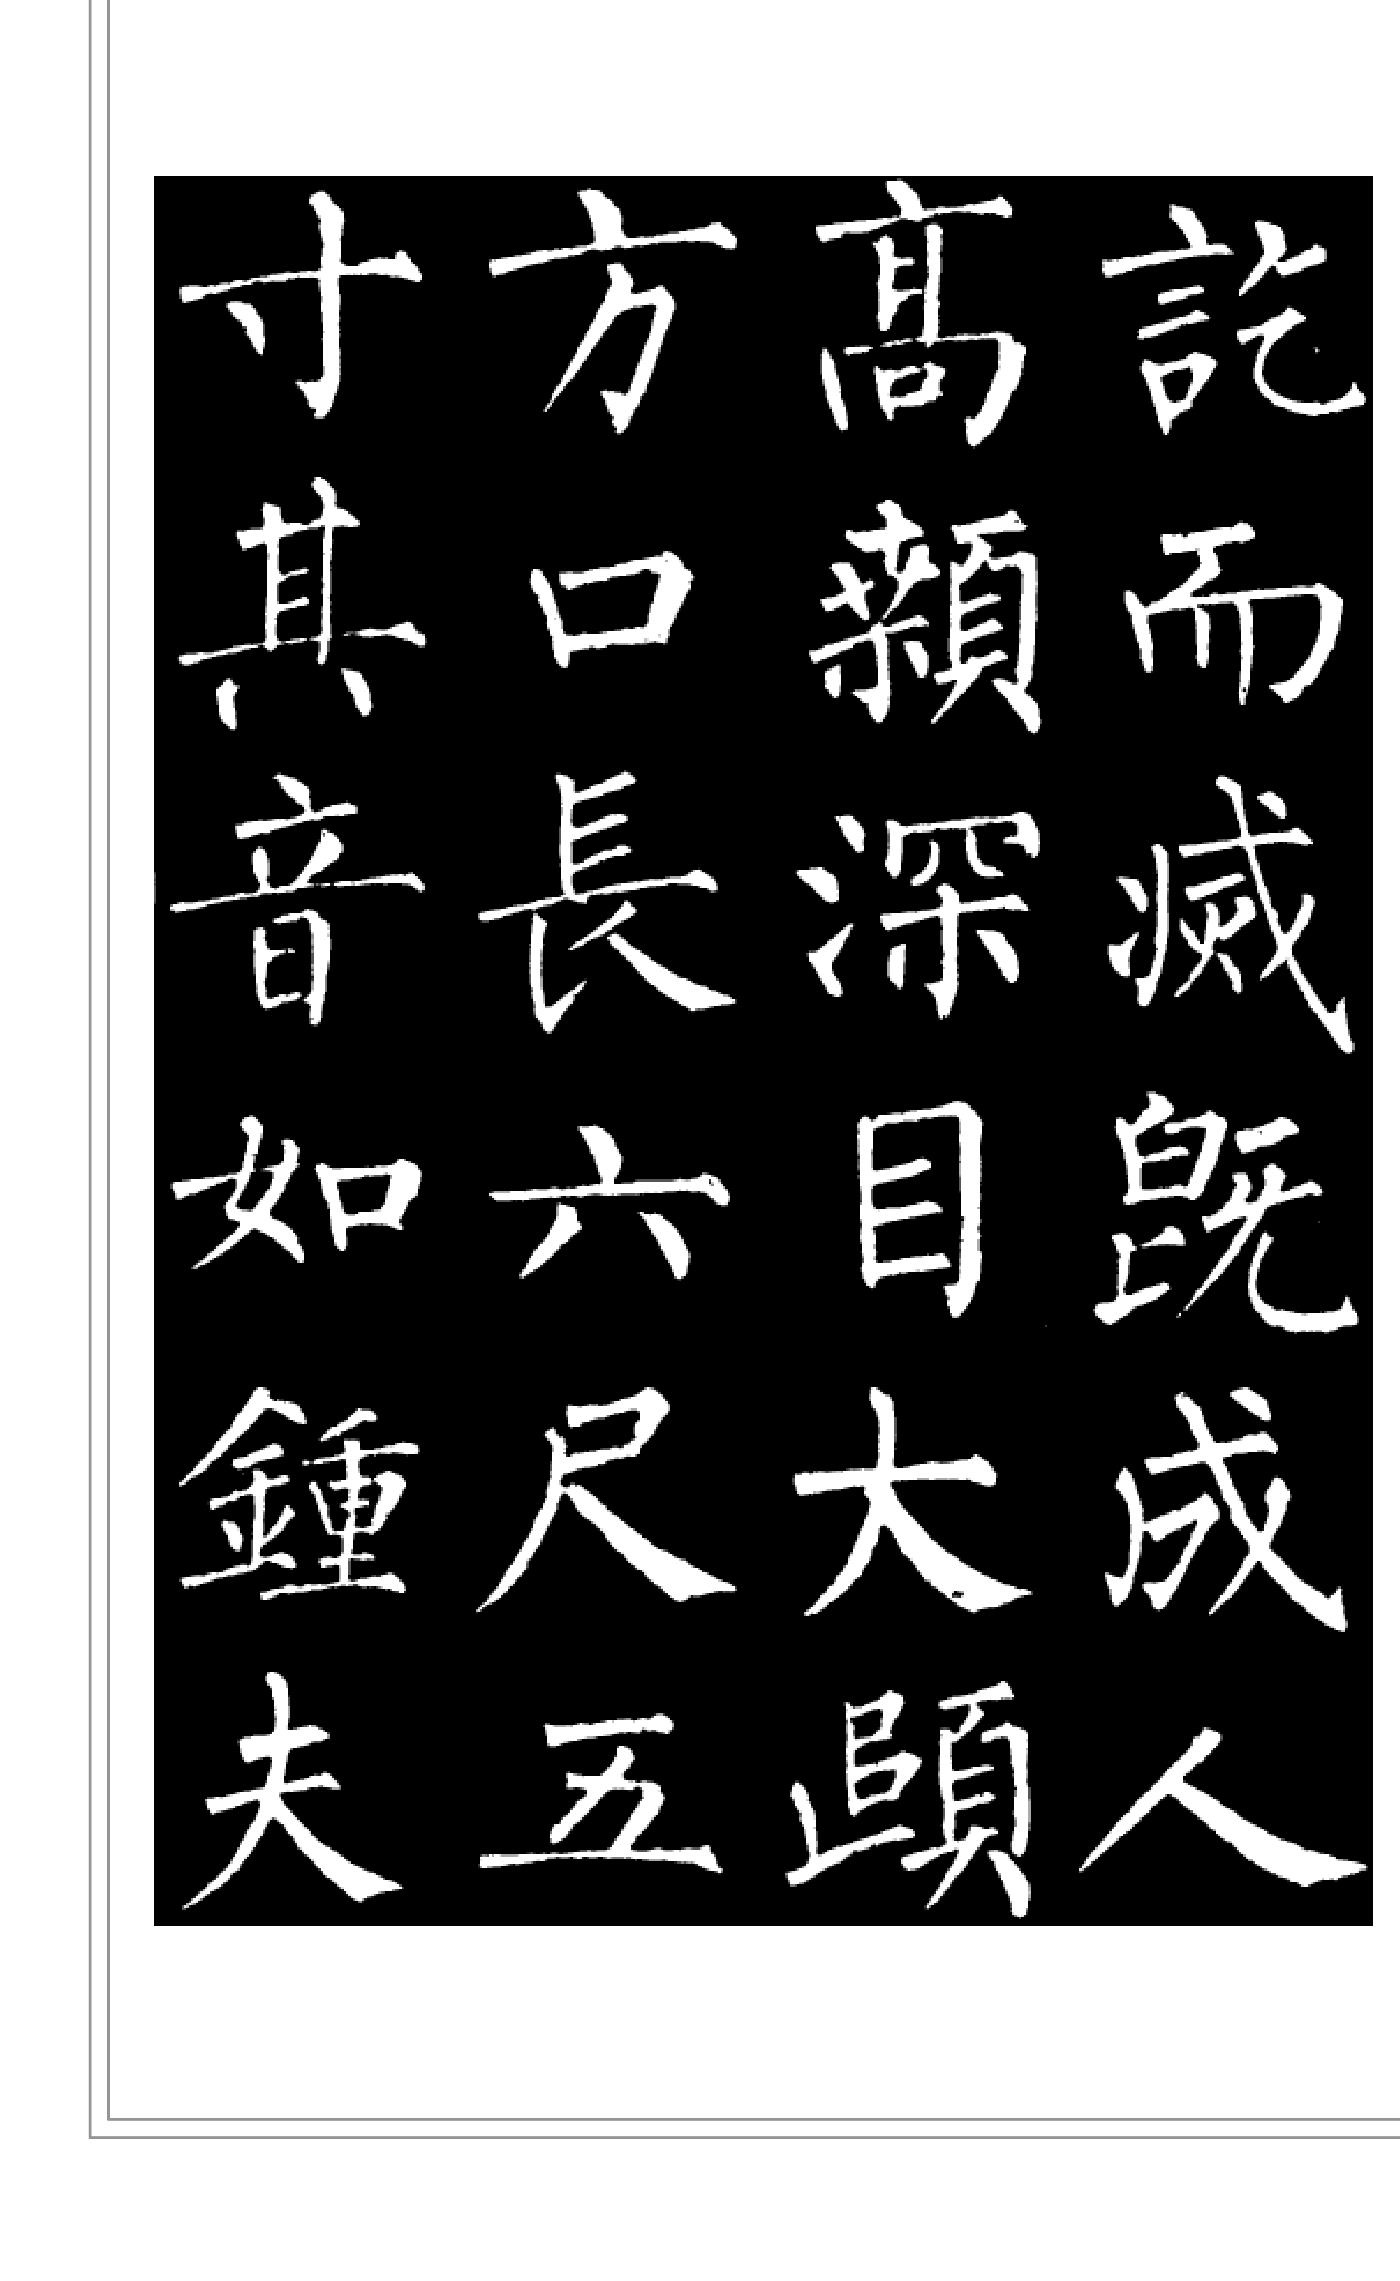 訖而滅既成人
髙顙深目大頤
方口長六尺五
寸其音如鍾夫